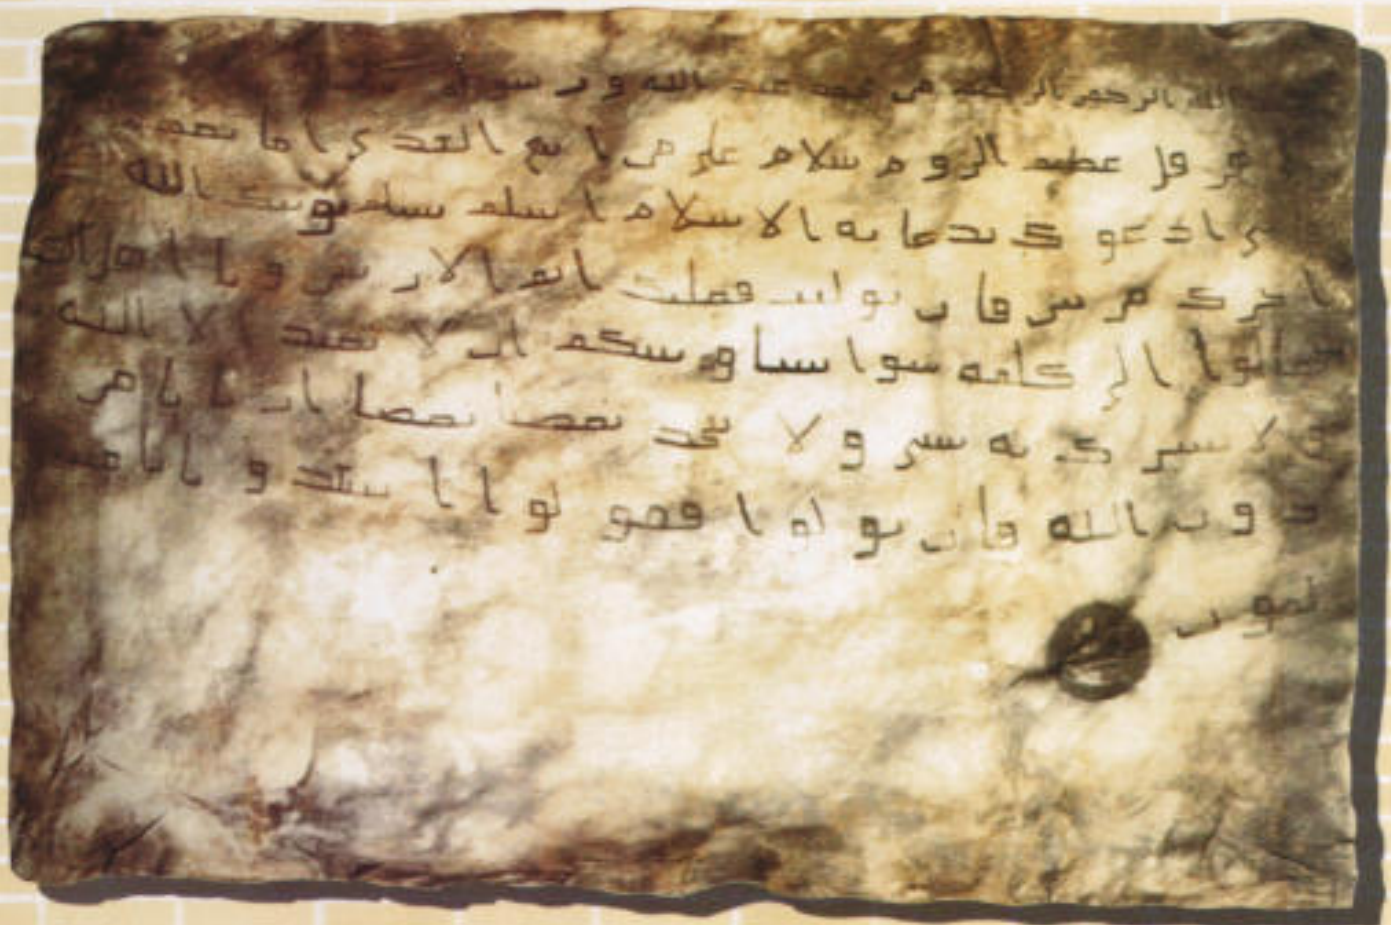 الله الرحمن الرحيم من محمد عبد الله ورسوله
هرقل عظيم الروم سلام على من اتبع الهدى اما بعد
ادعوك بدعاية الاسلام اسلم تسلم يوتك الله
اجرك مرتين فان توليت فعليك اثم الاريسين ويا اهل الكتاب
تعالوا الى كلمة سوا بيننا وبينكم ان لا نعبد الا الله
ولا نشرك به شيا ولا يتخذ بعضنا بعضا اربابا من
دون الله فان تولوا فقولوا اشهدوا بانا مسـ
لمون